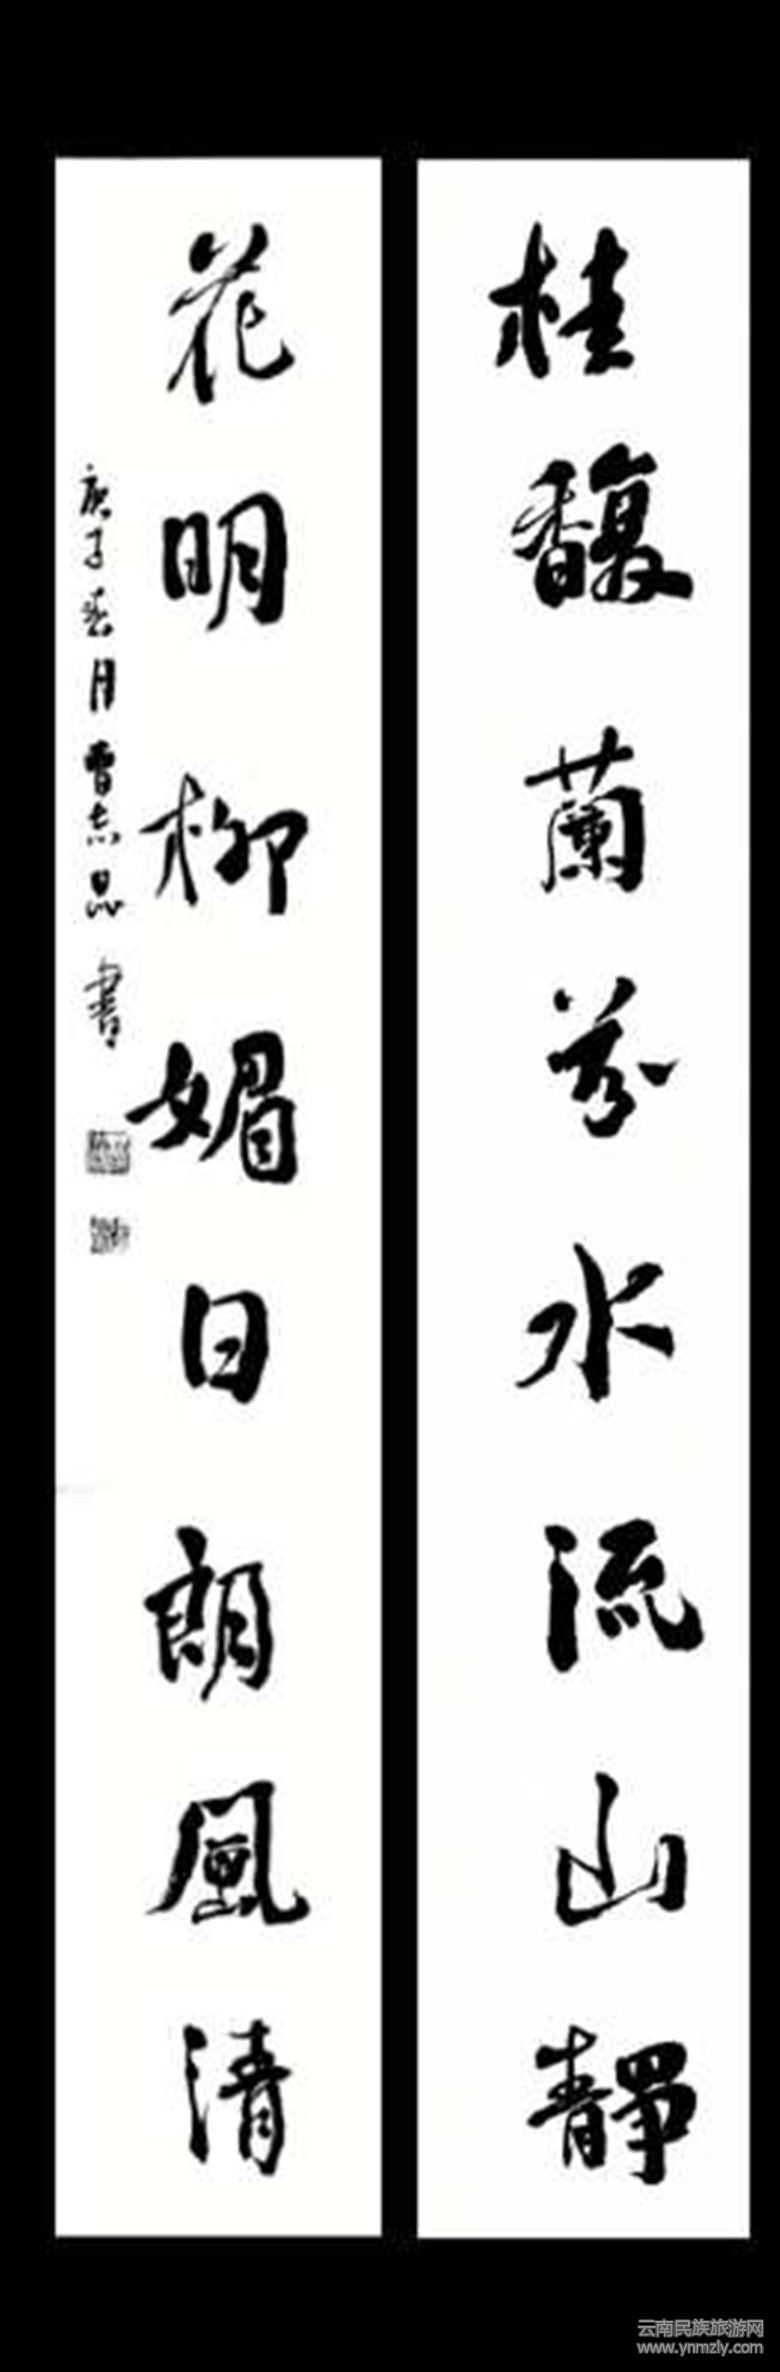 桂馥蘭芬水流山靜
花明柳媚日朗風清
庚子春月曹志昆書
云南民族旅游网
www.ynmzly.com